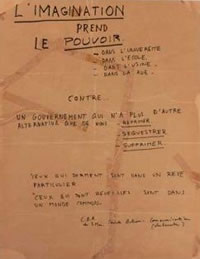 L'IMAGINATION
PREND
LE POUVOIR
- DANS L'UNIVERSITE
- DANS L'ECOLE.
- DANS L'USINE.
- DANS LA RUE.
CONTRE...
UN GOUVERNEMENT QUI N'A PLUS D'AUTRE
ALTERNATIVE QUE DE NOUS - REPRIMER
- SEQUESTRER
- SUPPRIMER.
CEUX QUI DORMENT SONT DANS UN REVE
PARTICULIER
CEUX QUI SONT REVEILLES SONT DANS
UN MONDE COMMUN.